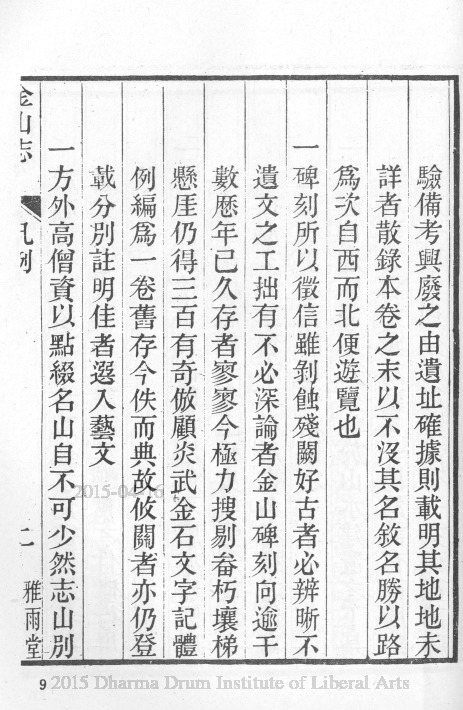 驗備考興廢之由遺址確據則載明其地地未
詳者散錄本卷之末以不沒其名敘名勝以路
爲次自西而北便遊覽也
一碑刻所以徵信雖剝蝕殘闕好古者必辨晰不
遺文之工拙有不必深論者金山碑刻向逾千
數歷年已久存者寥寥今極力搜剔畚朽壞梯
懸厓仍得三百有奇倣顧炎武金石文字記體
例編爲一卷舊存今佚而典故攸關者亦仍登
載分別註明佳者選入藝文
一方外高僧資以點綴名山自不可少然志山別
金山志 凡例 二 雅雨堂
2015-04-16
9 2015 Dharma Drum Institute of Liberal Arts